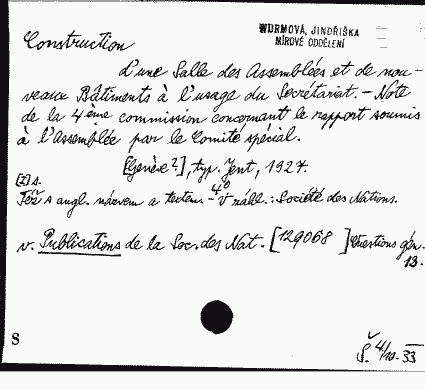 WURMOVÁ, JINDŘIŠKA
MÍROVÉ ODDĚLENÍ
Construction
d'une Salle des Assemblées et de nou-
veaux Bâtiments à l'usage du Secrétariat. - Note
de la 4ème commission concernant le rapport soumis
à l'Assemblée par le Comité spécial.
[Genève?], typ. Jent, 1927.
[2] s. 4°
Též s angl. názvem a textem - V záhl.: Société des Nations.
v. Publications de la Soc. des Nat. [129068] Questions gén.
13.
S
Š. 4/10. 33